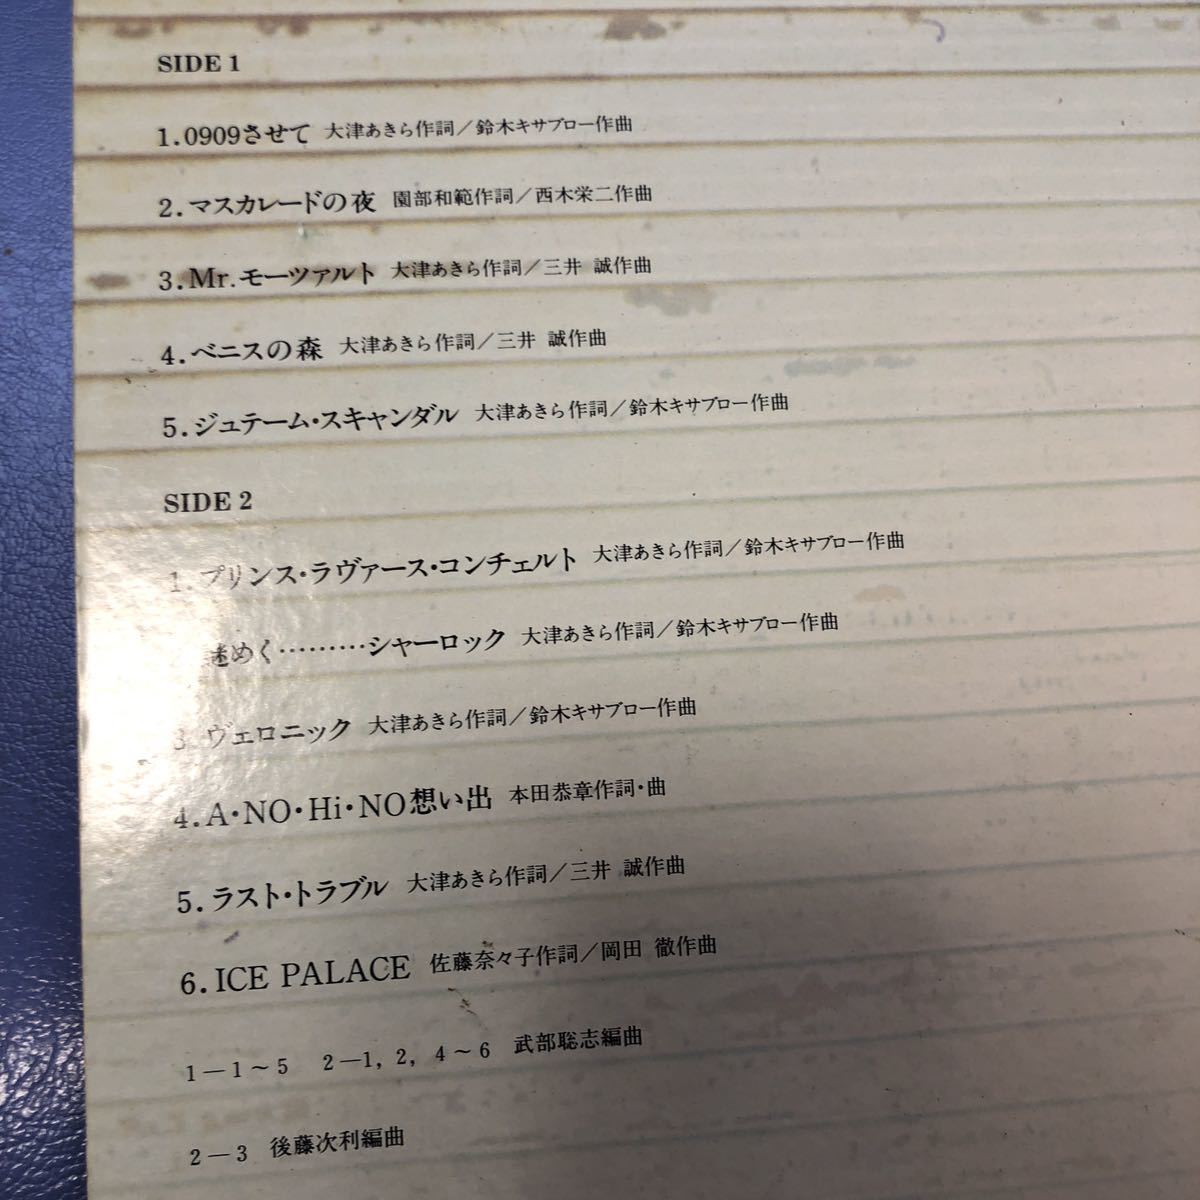 SIDE 1
1.0909させて 大津あきら作詞/鈴木キサブロー作曲
2.マスカレードの夜 園部和範作詞/西木栄二作曲
3.Mr.モーツァルト 大津あきら作詞/三井 誠作曲
4.ベニスの森 大津あきら作詞/三井 誠作曲
5.ジュテーム・スキャンダル 大津あきら作詞/鈴木キサブロー作曲
SIDE 2
1.プリンス・ラヴァース・コンチェルト 大津あきら作詞/鈴木キサブロー作曲
謎めく………シャーロック 大津あきら作詞/鈴木キサブロー作曲
3.ヴェロニック 大津あきら作詞/鈴木キサブロー作曲
4.A・NO・Hi・NO想い出 本田恭章作詞・曲
5.ラスト・トラブル 大津あきら作詞/三井 誠作曲
6.ICE PALACE 佐藤奈々子作詞/岡田 徹作曲
1―1～5 2―1, 2, 4～6 武部聡志編曲
2―3 後藤次利編曲